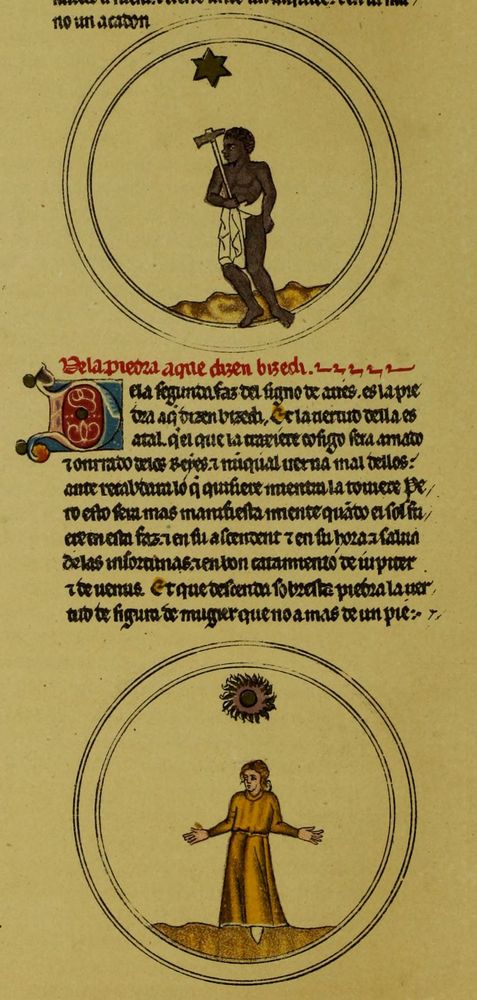 no un açadon
De la piedra a que dizen bizedi.
De la segunda faz del signo de aries. es la pie
dra aq̃ dizen bizedi. Et la uertud della es
atal. q̃ el que la troxiere cõsigo sera amado
⁊ onrrado de los Reyes. ⁊ nũqual uerna mal dellos:
ante recabdara lo q̃ quisiere mientra la touiere Pe
ro esto sera mas manifiesta miente quãdo el sol fu
ere en esta faz. ⁊ en su ascendent ⁊ en su hora ⁊ saluo
de las infortunas. ⁊ en bon catamiento de iupiter
⁊ de uenus. Et que descenda sobresta piedra la uer
tud de figura de mugier que no a mas de un pie: